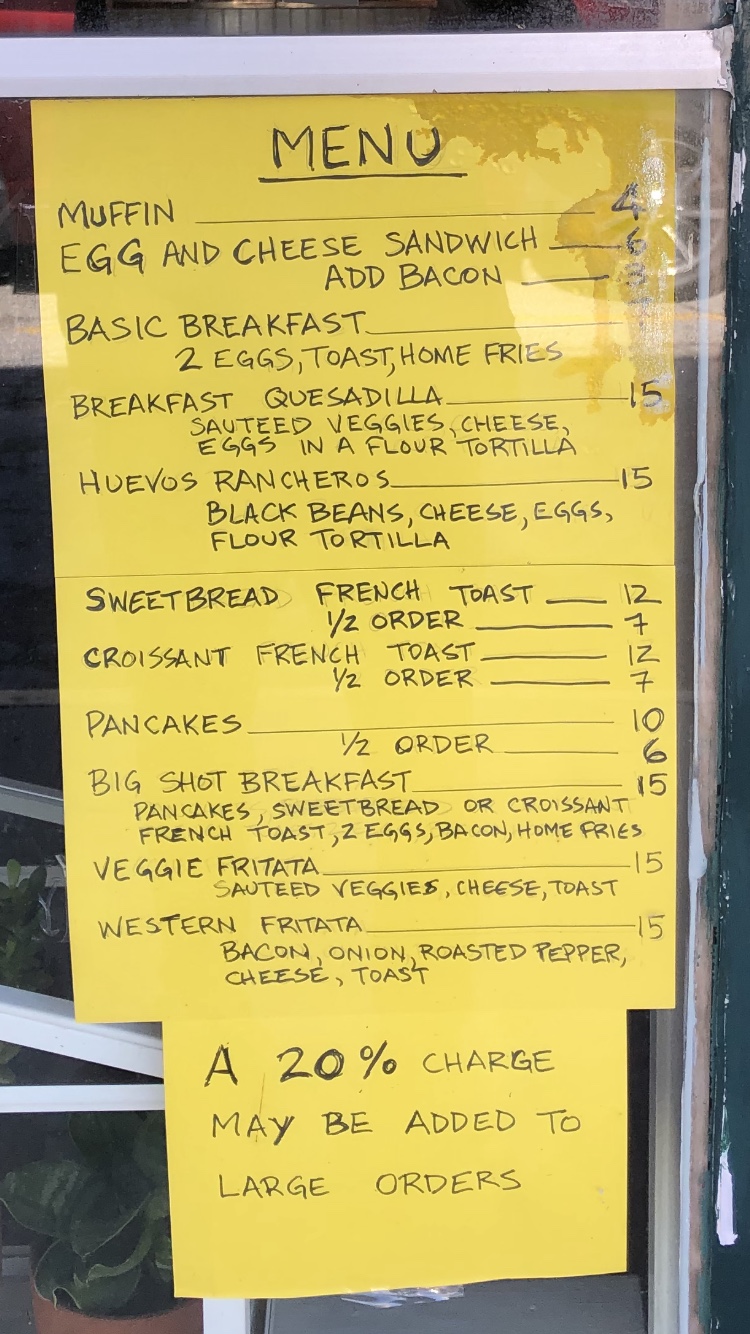 MENU
MUFFIN 4
EGG AND CHEESE SANDWICH 6
ADD BACON 3
BASIC BREAKFAST
2 EGGS, TOAST, HOME FRIES
BREAKFAST QUESADILLA 15
SAUTEED VEGGIES, CHEESE,
EGGS IN A FLOUR TORTILLA
HUEVOS RANCHEROS 15
BLACK BEANS, CHEESE, EGGS,
FLOUR TORTILLA
SWEETBREAD FRENCH TOAST 12
1/2 ORDER 7
CROISSANT FRENCH TOAST 12
1/2 ORDER 7
PANCAKES 10
1/2 ORDER 6
BIG SHOT BREAKFAST 15
PANCAKES, SWEETBREAD OR CROISSANT
FRENCH TOAST, 2 EGGS, BACON, HOME FRIES
VEGGIE FRITATA 15
SAUTEED VEGGIES, CHEESE, TOAST
WESTERN FRITATA 15
BACON, ONION, ROASTED PEPPER,
CHEESE, TOAST
A 20% CHARGE
MAY BE ADDED TO
LARGE ORDERS